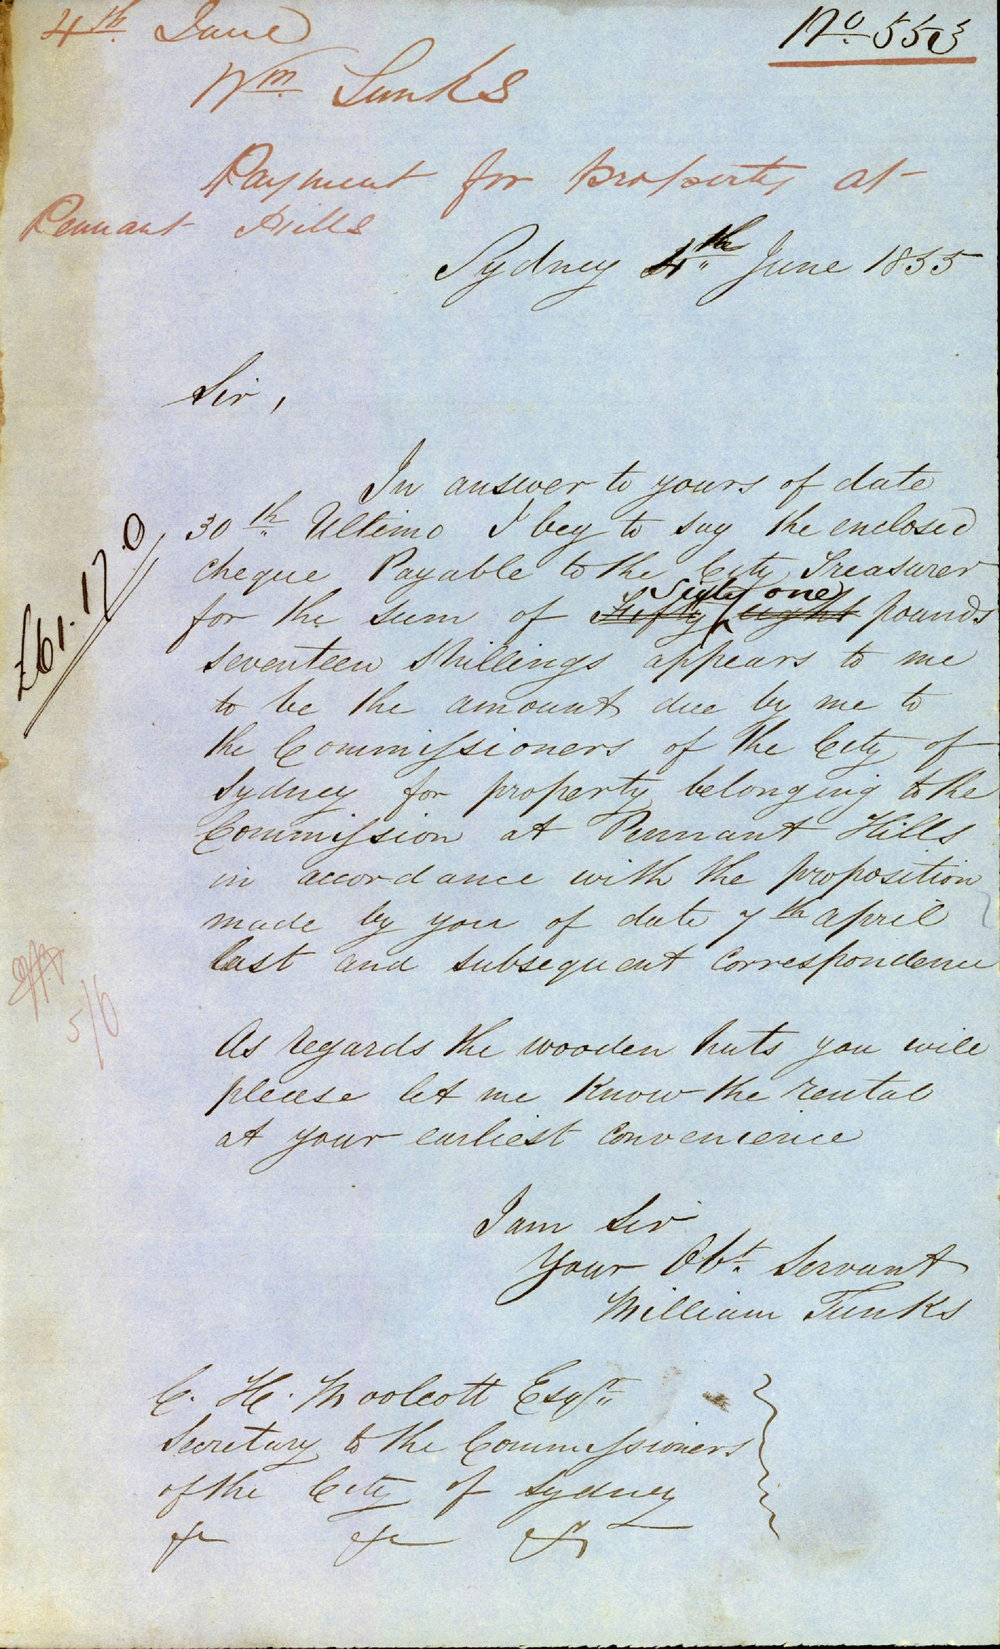 4th. June
No. 553
Wm. Tunks
Payment for property at
Pennant Hills
Sydney 4th June 1855
Sir,
In answer to yours of date
30th Ultimo I beg to say the enclosed
cheque Payable to the City Treasurer
Sixty one
for the sum of Fifty eight pounds
seventeen Shillings appears to me
to be the amount due by me to
the Commissioners of the City of
Sydney for property belonging to the
Commission at Pennant Hills
in accordance with the proposition
made by you of date 7th april
last and subsequent Correspondence
£61.17.0
5/6
As regards the wooden huts you will
please let me Know the rental
at your earliest Convenience
I am Sir
Your Obt. Servant
William Tunks
C. H. Woolcott Esqr.
Secretary to the Commissioners
of the City of Sydney
&c &c &c